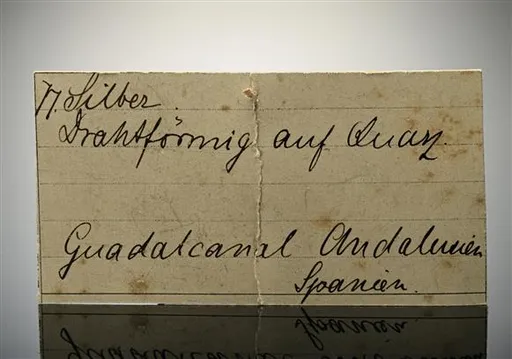 N. Silber.
Drahtförmig auf Quarz.
Guadalcanal Andalusien
Spanien.